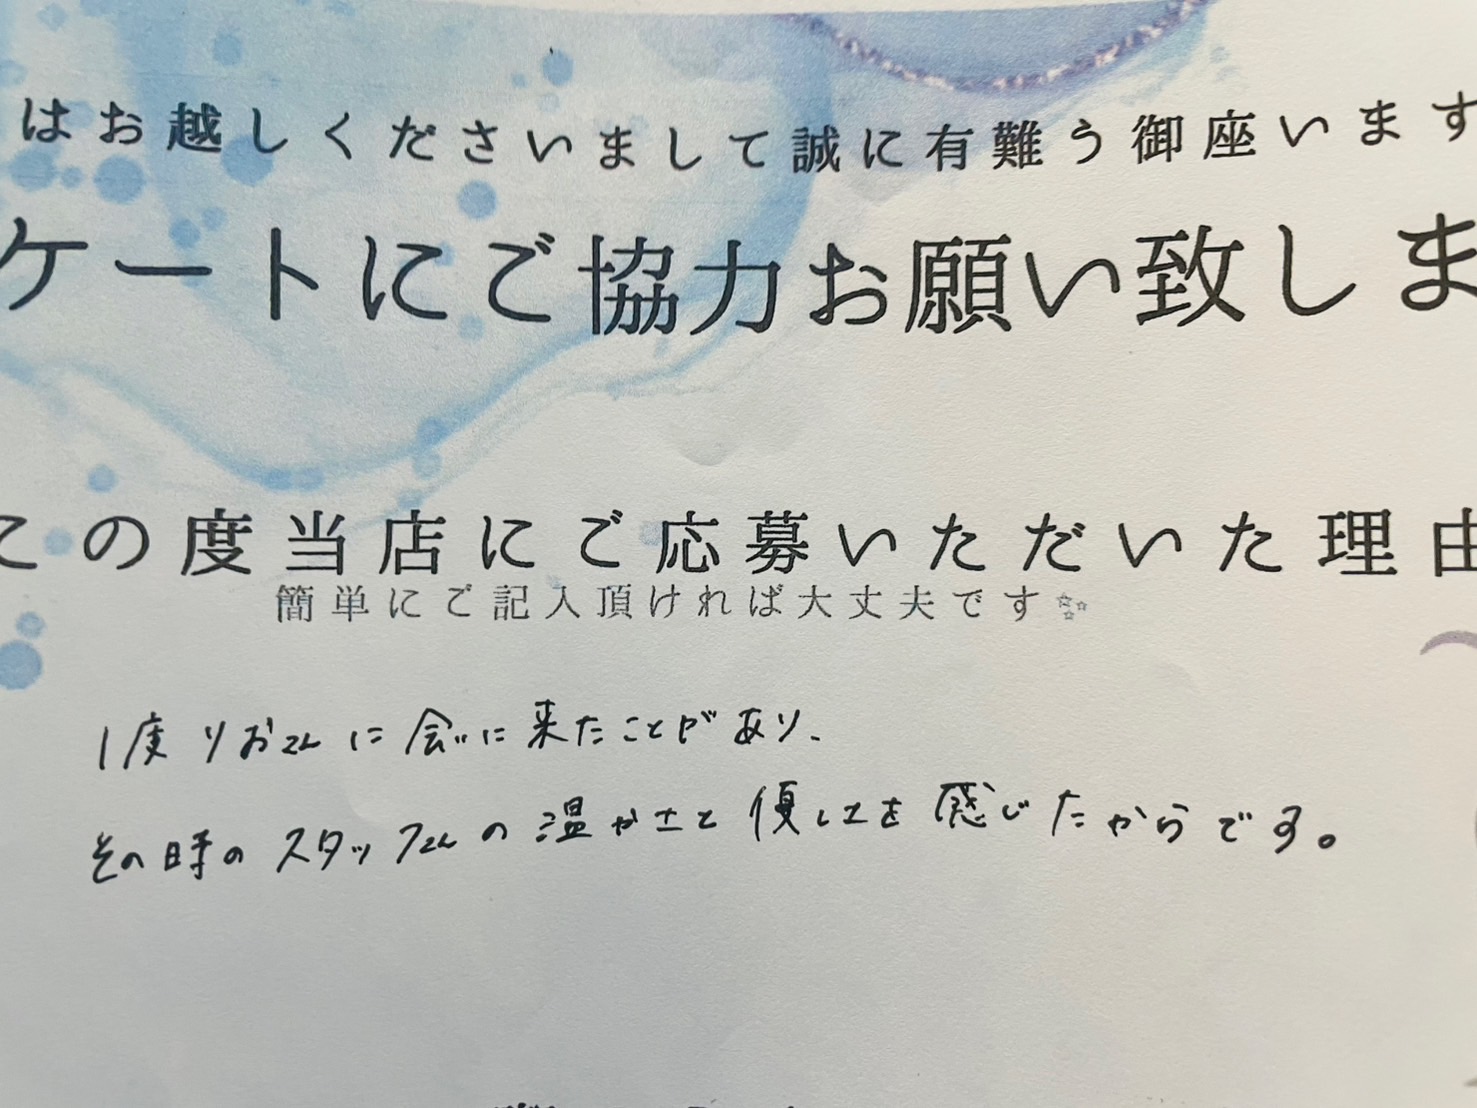 はお越しくださいまして誠に有難う御座います
ケートにご協力お願い致しま
この度当店にご応募いただいた理由
簡単にご記入頂ければ大丈夫です
1度りおさんに会いに来たことがあり、
その時のスタッフさんの温かさと優しさを感じたからです。